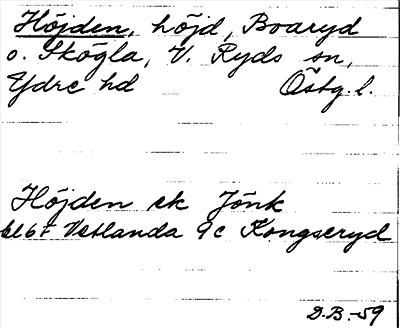 Höjden, höjd, Boaryd
o. Skögla, V. Ryds sn,
Ydre hd Östg. l.
Höjden ek Jönk
bl 6F Vetlanda 9c Kongseryd
D.B.-59